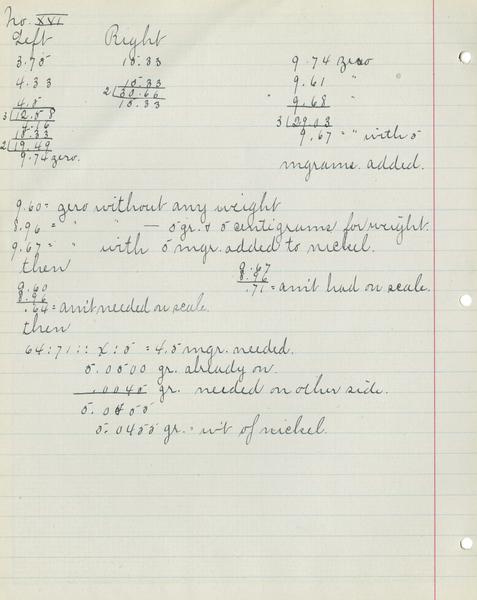 No. XVI
Left Right
3.75 10.33
4.33 10.33
4.5 2|20.66
3|12.58 10.33
4.16
10.33
2|19.49
9.74 zero.
9.74 zero
9.61 "
9.68 "
3|29.03
9.67 = " with 5
mgrams. added.
9.60 = zero without any weight
8.96 = " " — 5 gr. & 5 centigrams for weight.
9.67 = " " with 5 mgr. added to nickel.
then
9.60
8.96
.64 = am't needed on scale.
9.67
8.96
.71 = am't had on scale.
then
64:71 :: X:5 = 4.5 mgr. needed.
5.0500 gr. already on
.0045 gr. needed on other side.
5.0455
5.0455 gr. = w't of nickel.